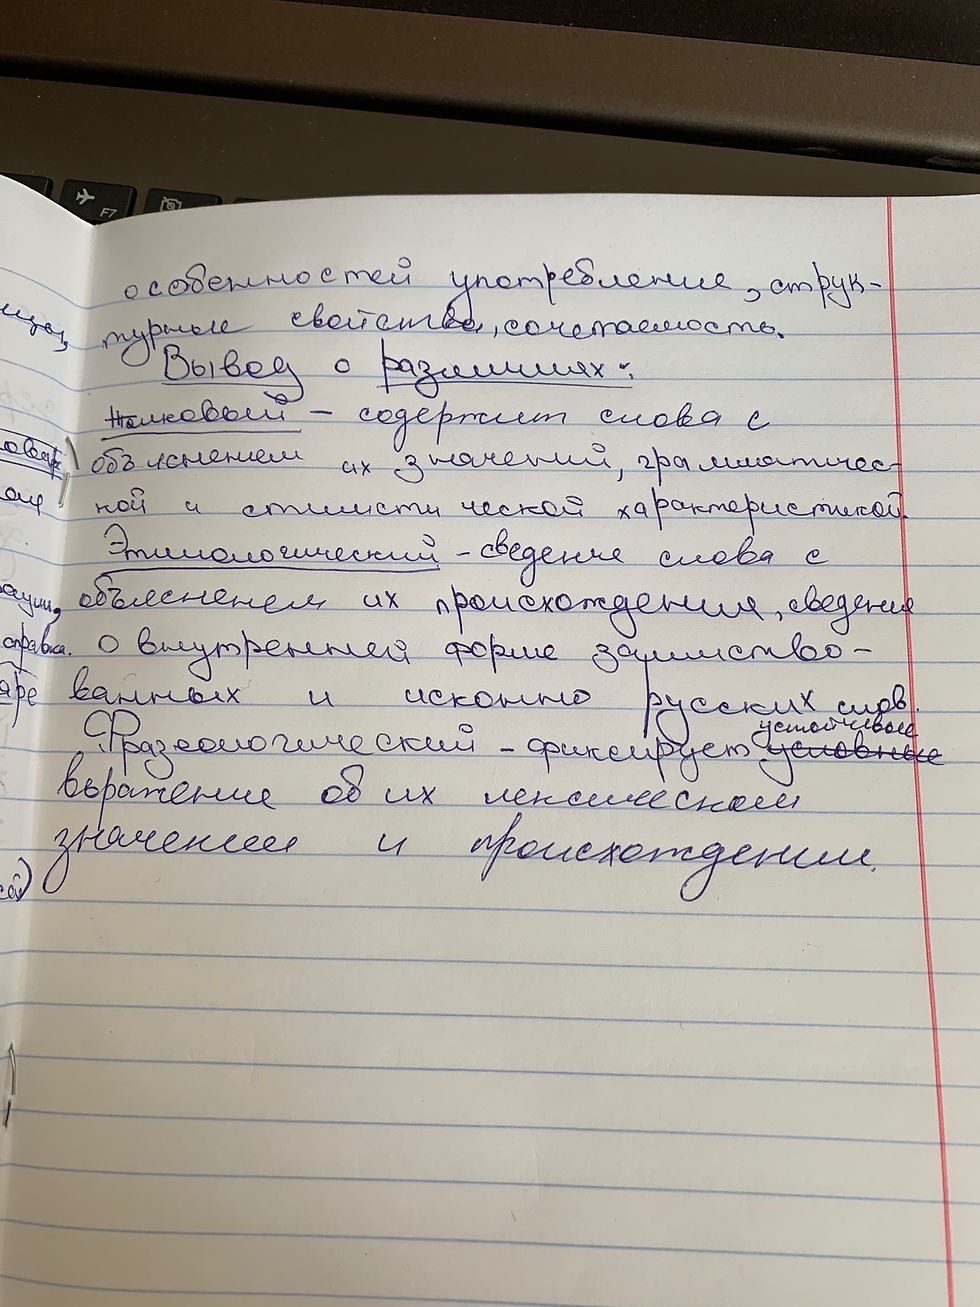 особенностей употребление, струк-
турные свойства, сочетаемость.
Вывод о различиях:
Толковый – содержит слова с
объяснением их значений, грамматичес-
кой и стилистической характеристикой
Этимологический – сведение слова с
объяснением их происхождения, сведения
о внутренней форме заимство-
ванных и исконно русских слов.
устойчивые
Фразеологический – фиксирует условные
выражение об их лексическом
значении и происхождении.
справка.
F7